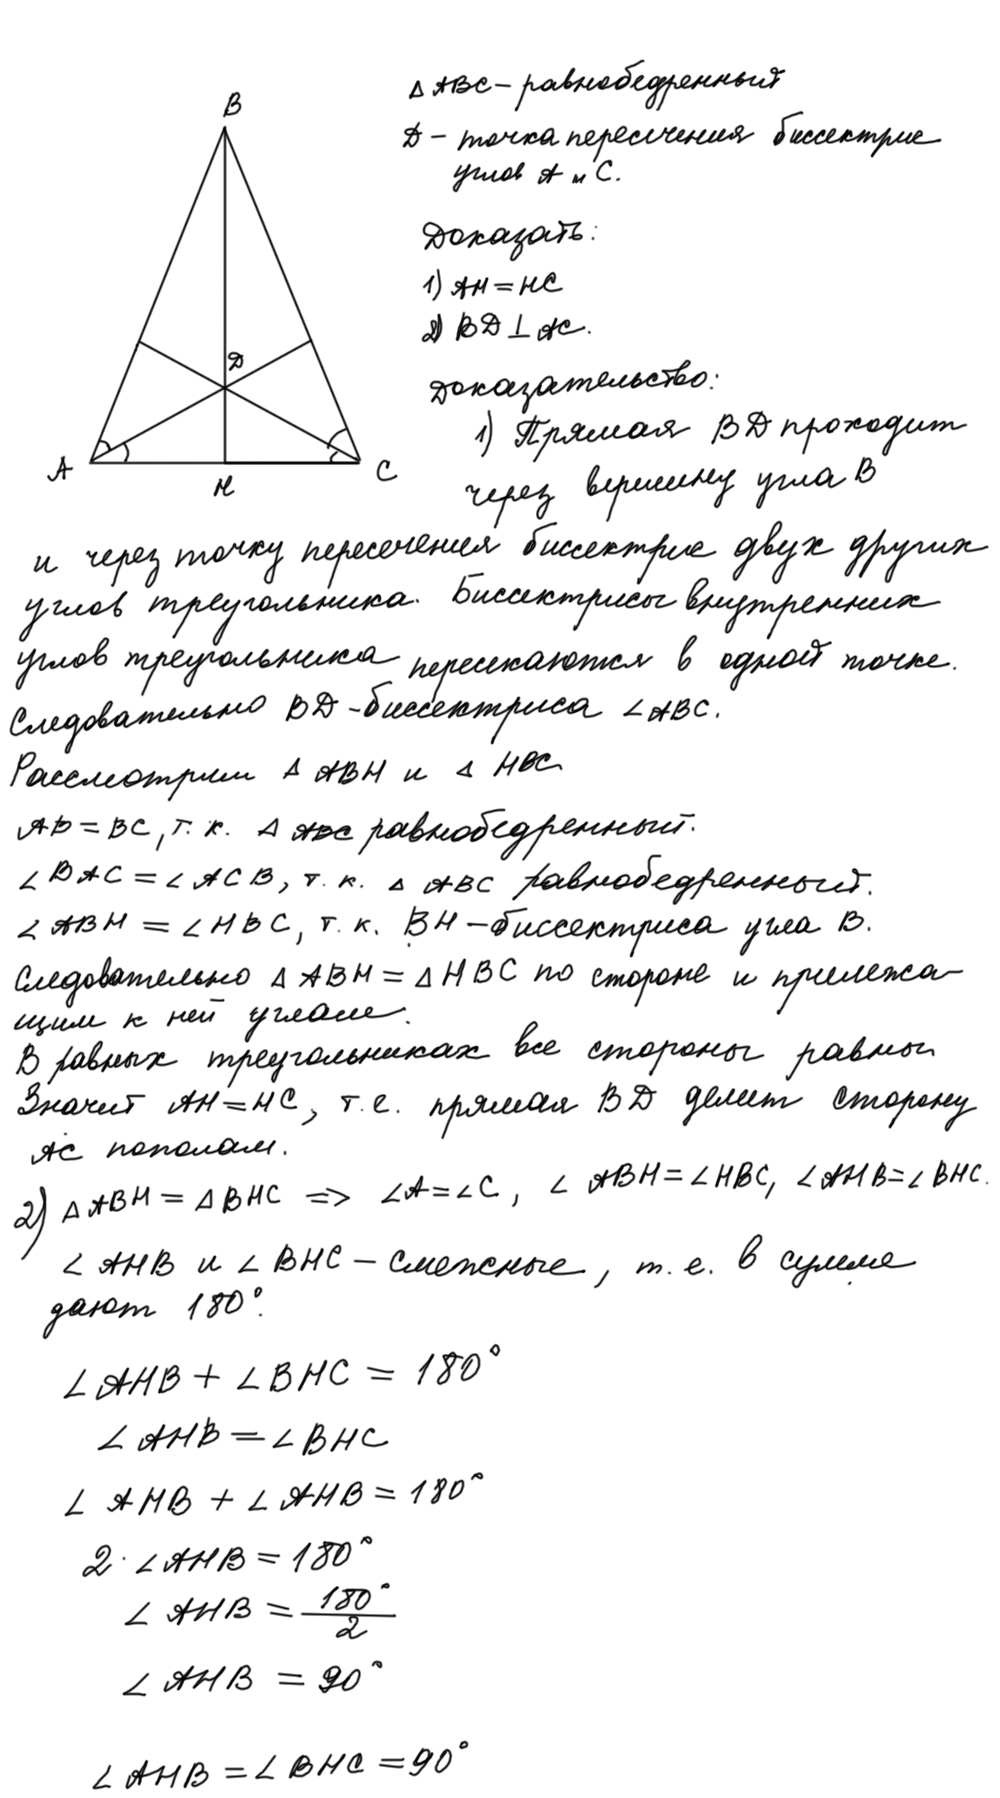 B
Δ ABC – равнобедренный
D – точка пересечения биссектрис
углов A и C.
Доказать:
1) AH = HC
2) BD ⊥ AC.
D
Доказательство:
1) Прямая BD проходит
A
C
H
через вершину угла B
и через точку пересечения биссектрис двух других
углов треугольника. Биссектрисы внутренних
углов треугольника пересекаются в одной точке.
Следовательно BD – биссектриса ∠ABC.
Рассмотрим Δ ABH и Δ HBC
AB = BC, т.к. Δ ABC равнобедренный.
∠BAC = ∠ACB, т.к. Δ ABC равнобедренный.
∠ABH = ∠HBC, т.к. BH – биссектриса угла B.
Следовательно Δ ABH = Δ HBC по стороне и прилежа-
щим к ней углам.
В равных треугольниках все стороны равны
Значит AH = HC, т.е. прямая BD делит сторону
AC пополам.
2) Δ ABH = Δ BHC => ∠A = ∠C, ∠ABH = ∠HBC, ∠AHB = ∠BHC.
∠AHB и ∠BHC – смежные, т.е. в сумме
дают 180°.
∠AHB + ∠BHC = 180°
∠AHB = ∠BHC
∠AHB + ∠AHB = 180°
2 · ∠AHB = 180°
∠AHB = 180°/2
∠AHB = 90°
∠AHB = ∠BHC = 90°